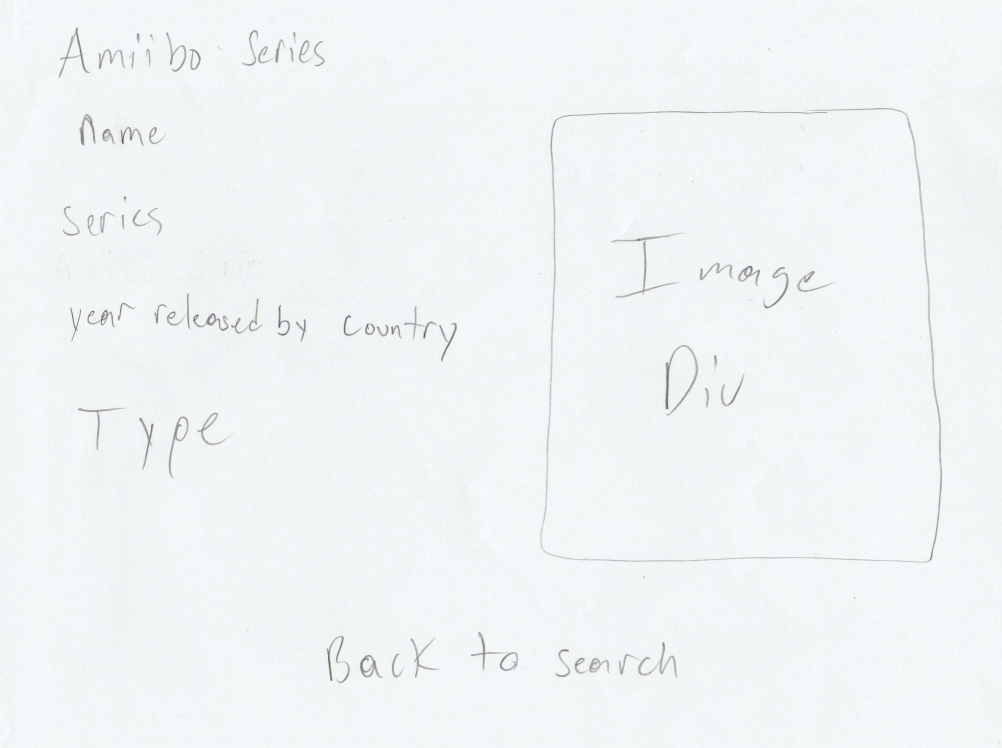 Amiibo Series
Name
Series
year released by country
Type
Image
Div
Back to search